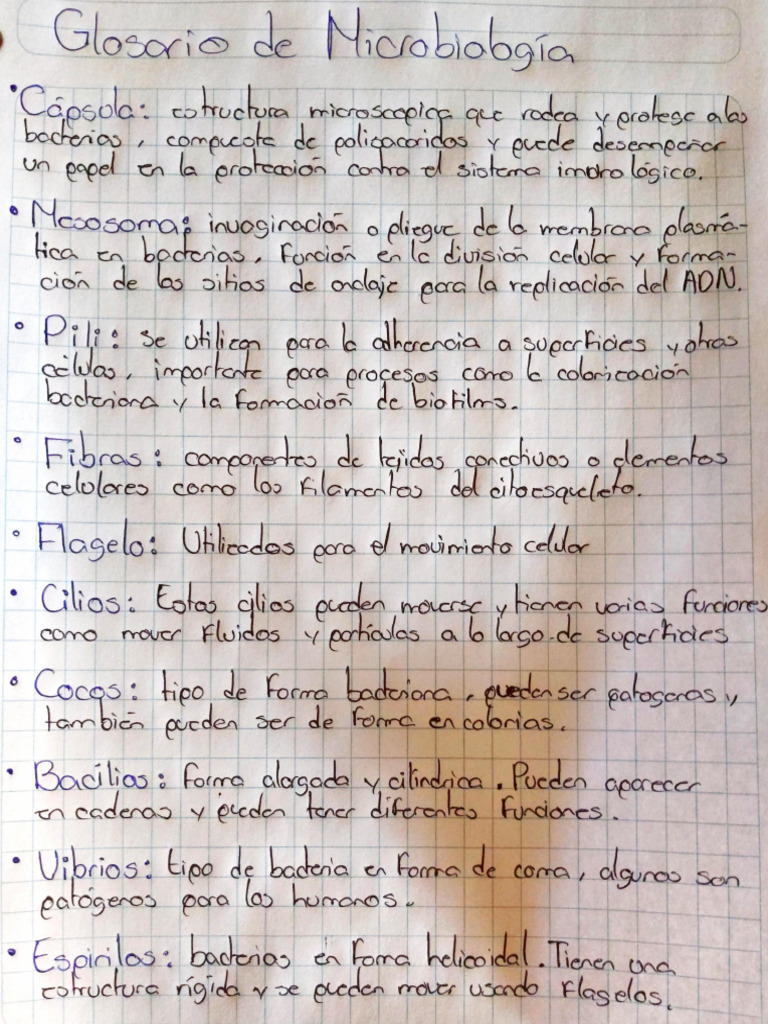 Glosario de Microbiología
• Cápsula: estructura microscopica que rodea y protege a las
bacterias, compuesta de polisacaridos y puede desempeñar
un papel en la protección contra el sistema inmonológico.
• Mesosoma: invaginación o pliegue de la membrana plasmá-
tica en bacterias. Función en la división celular y forma-
ción de los sitios de anclaje para la replicación del ADN.
• Pili: se utilizan para la adherencia a superficies y otras
células, importante para procesos como la colonización
bacteriana y la formación de biofilms.
• Fibras: componentes de tejidos conectivos o elementos
celulares como los filamentos del citoesqueleto.
• Flagelo: Utilizados para el movimiento celular
• Cilios: Estos cilios pueden moverse y tienen varias funciones
como mover fluidos y partículas a lo largo de superficies
• Cocos: tipo de forma bacteriana, pueden ser patogenas y
también pueden ser de forma en colonias.
• Bacilios: forma alargada y cilindrica. Pueden aparecer
en cadenas y pueden tener diferentes funciones.
• Vibrios: tipo de bacteria en forma de coma, algunas son
patógenos para los humanos.
• Espirilos: bacterias en forma helicoidal. Tienen una
estructura rígida y se pueden mover usando flagelos.